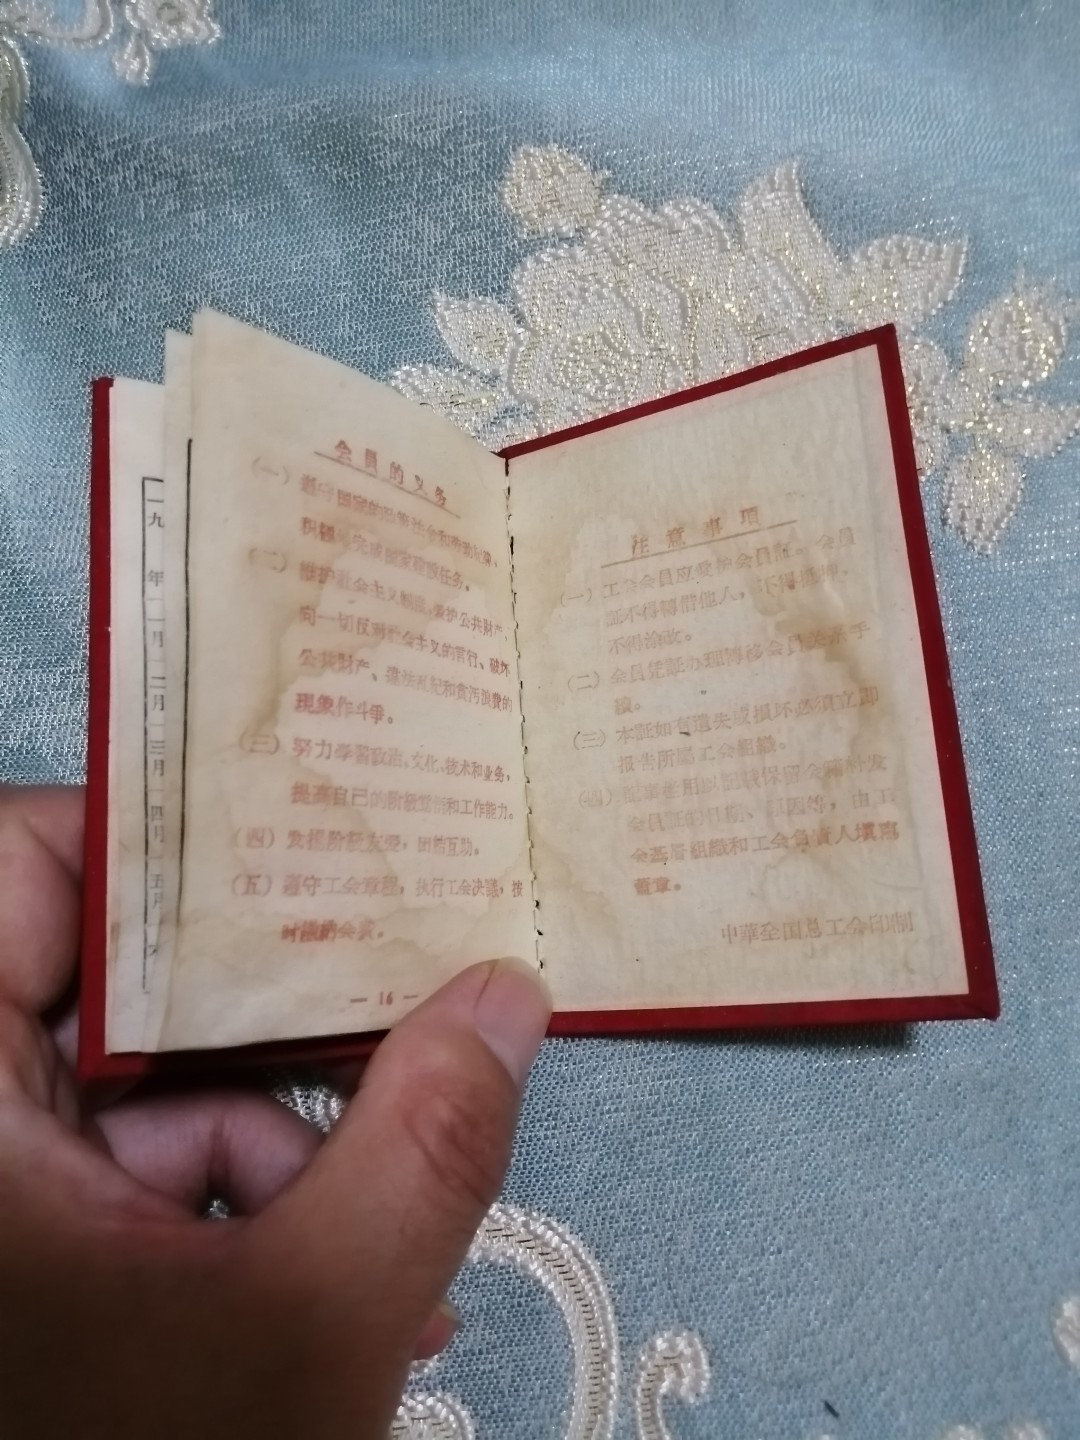 一九
年
一月
二月
三月
四月
五月
会員的义务
(一) 遵守国家的政策法令和劳动紀律,
积极 完成国家建設任务。
(二) 維护社会主义制度,爱护公共財产,
向一切反对社会主义的言行、破坏
公共財产、違法乱纪和貪污浪費的
現象作斗爭。
(三) 努力学習政治、文化、技术和业务,
提高自己的阶級覚悟和工作能力。
(四) 发揚阶級友爱,团結互助。
(五) 遵守工会章程,执行工会决議,按
时繳納会費。
— 16 —
注意事項
(一) 工会会員应爱护会員証。会員
証不得轉借他人,不得抵押,
不得涂改。
(二) 会員凭証办理轉移会員关系手
續。
(三) 本証如有遺失或損坏必須立即
报告所屬工会組織。
(四) 記事栏用以記載保留会籍补发
会員証的日期、原因等,由工
会基层組織和工会負責人填寫
蓋章。
中華全国总工会印制